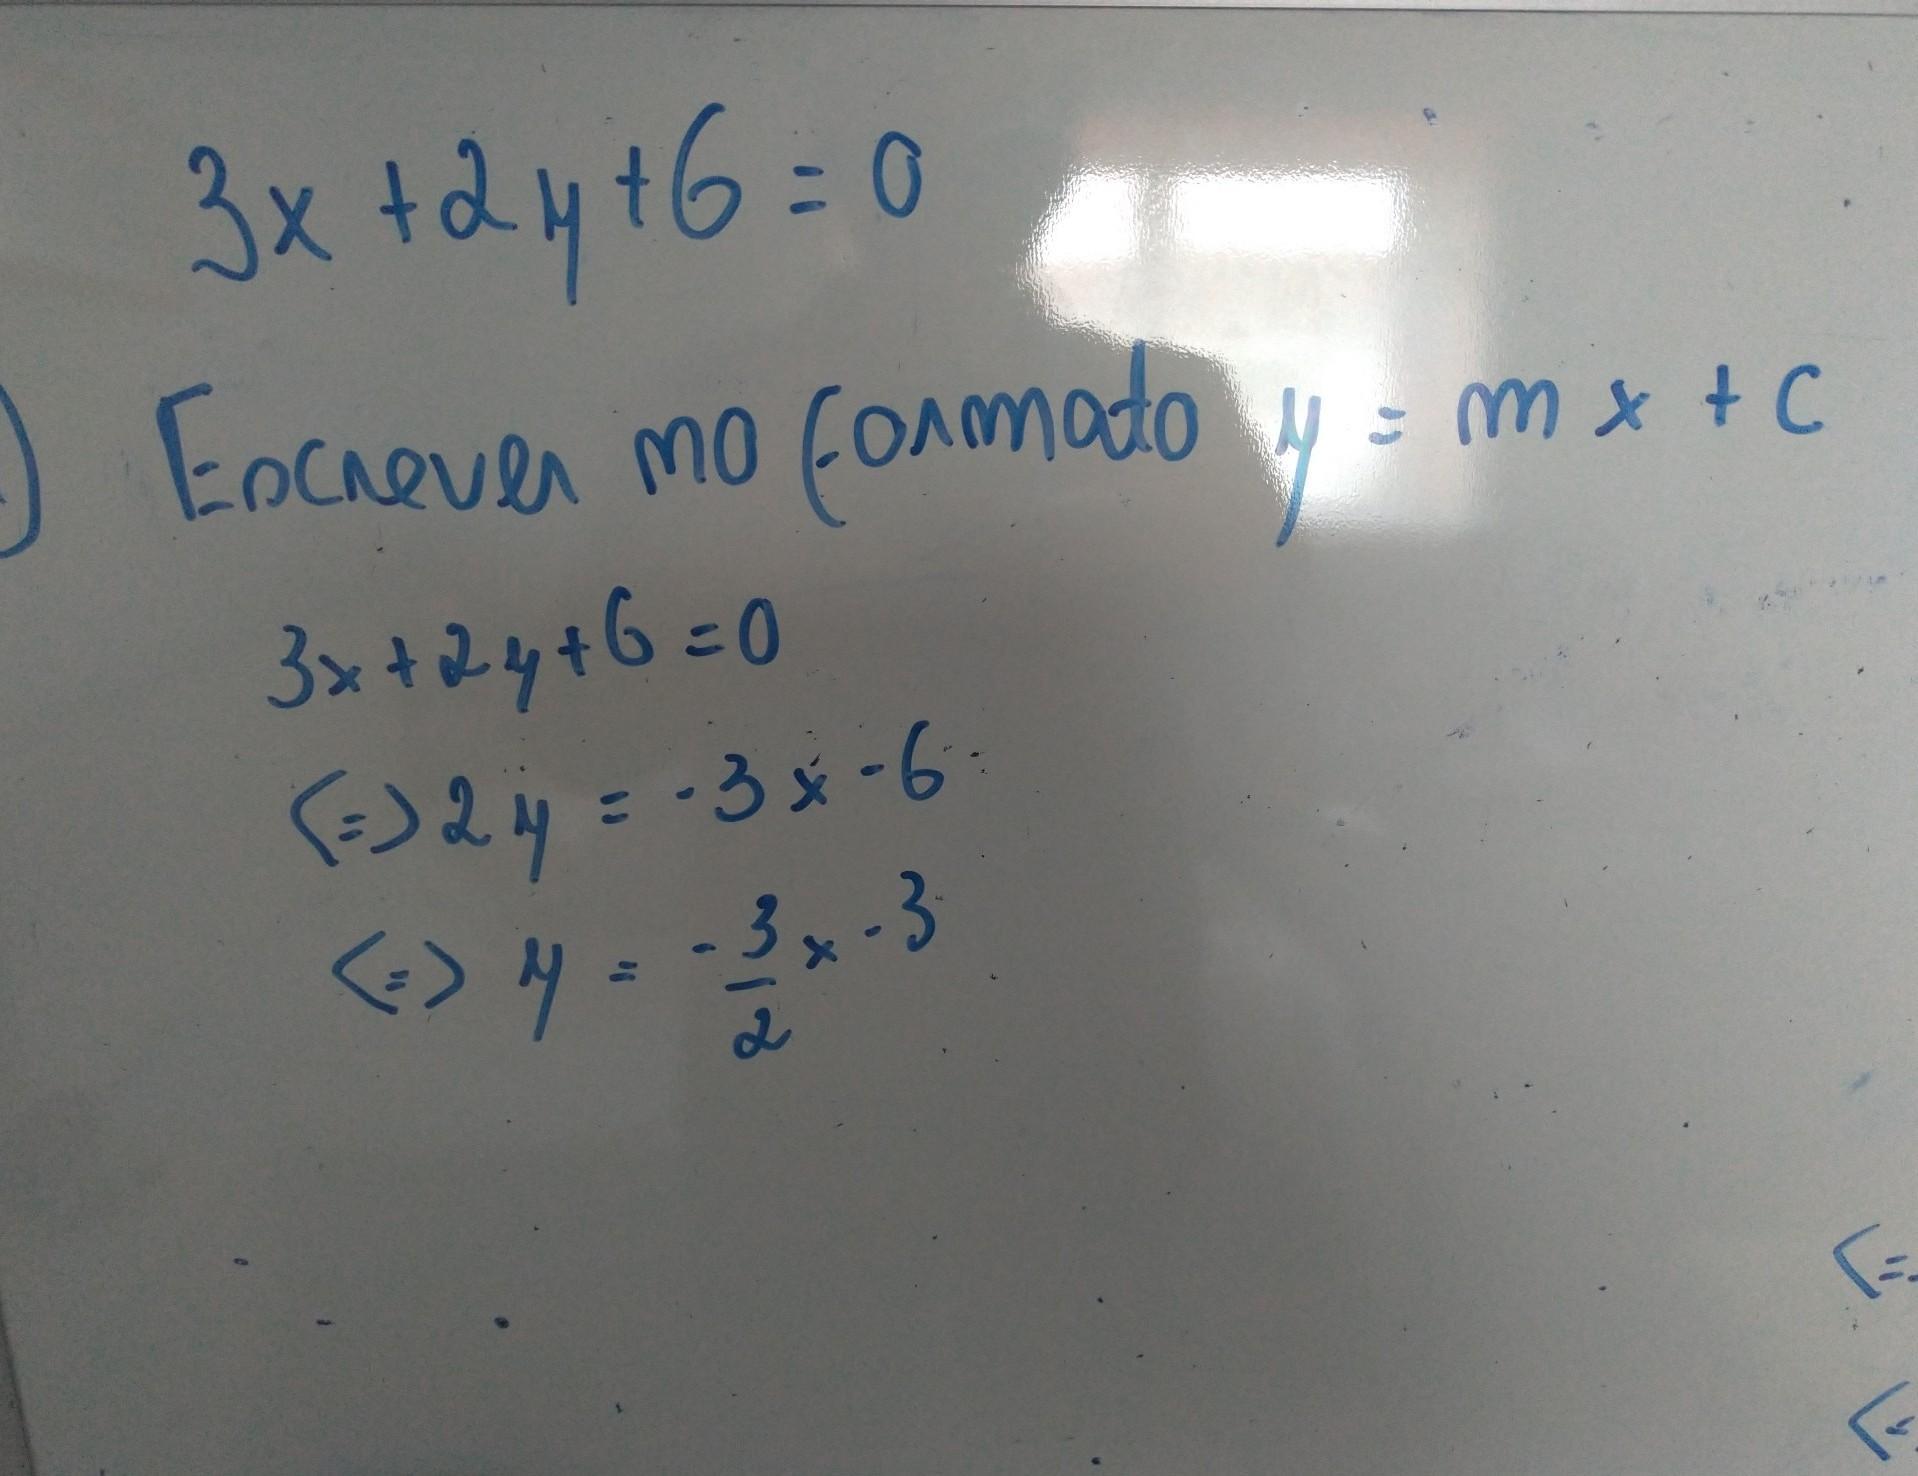 3x + 2y + 6 = 0
) Escrever no formato y = mx + c
3x + 2y + 6 = 0
<=> 2y = -3x - 6
<=> y = -3/2 x - 3
<=
<=